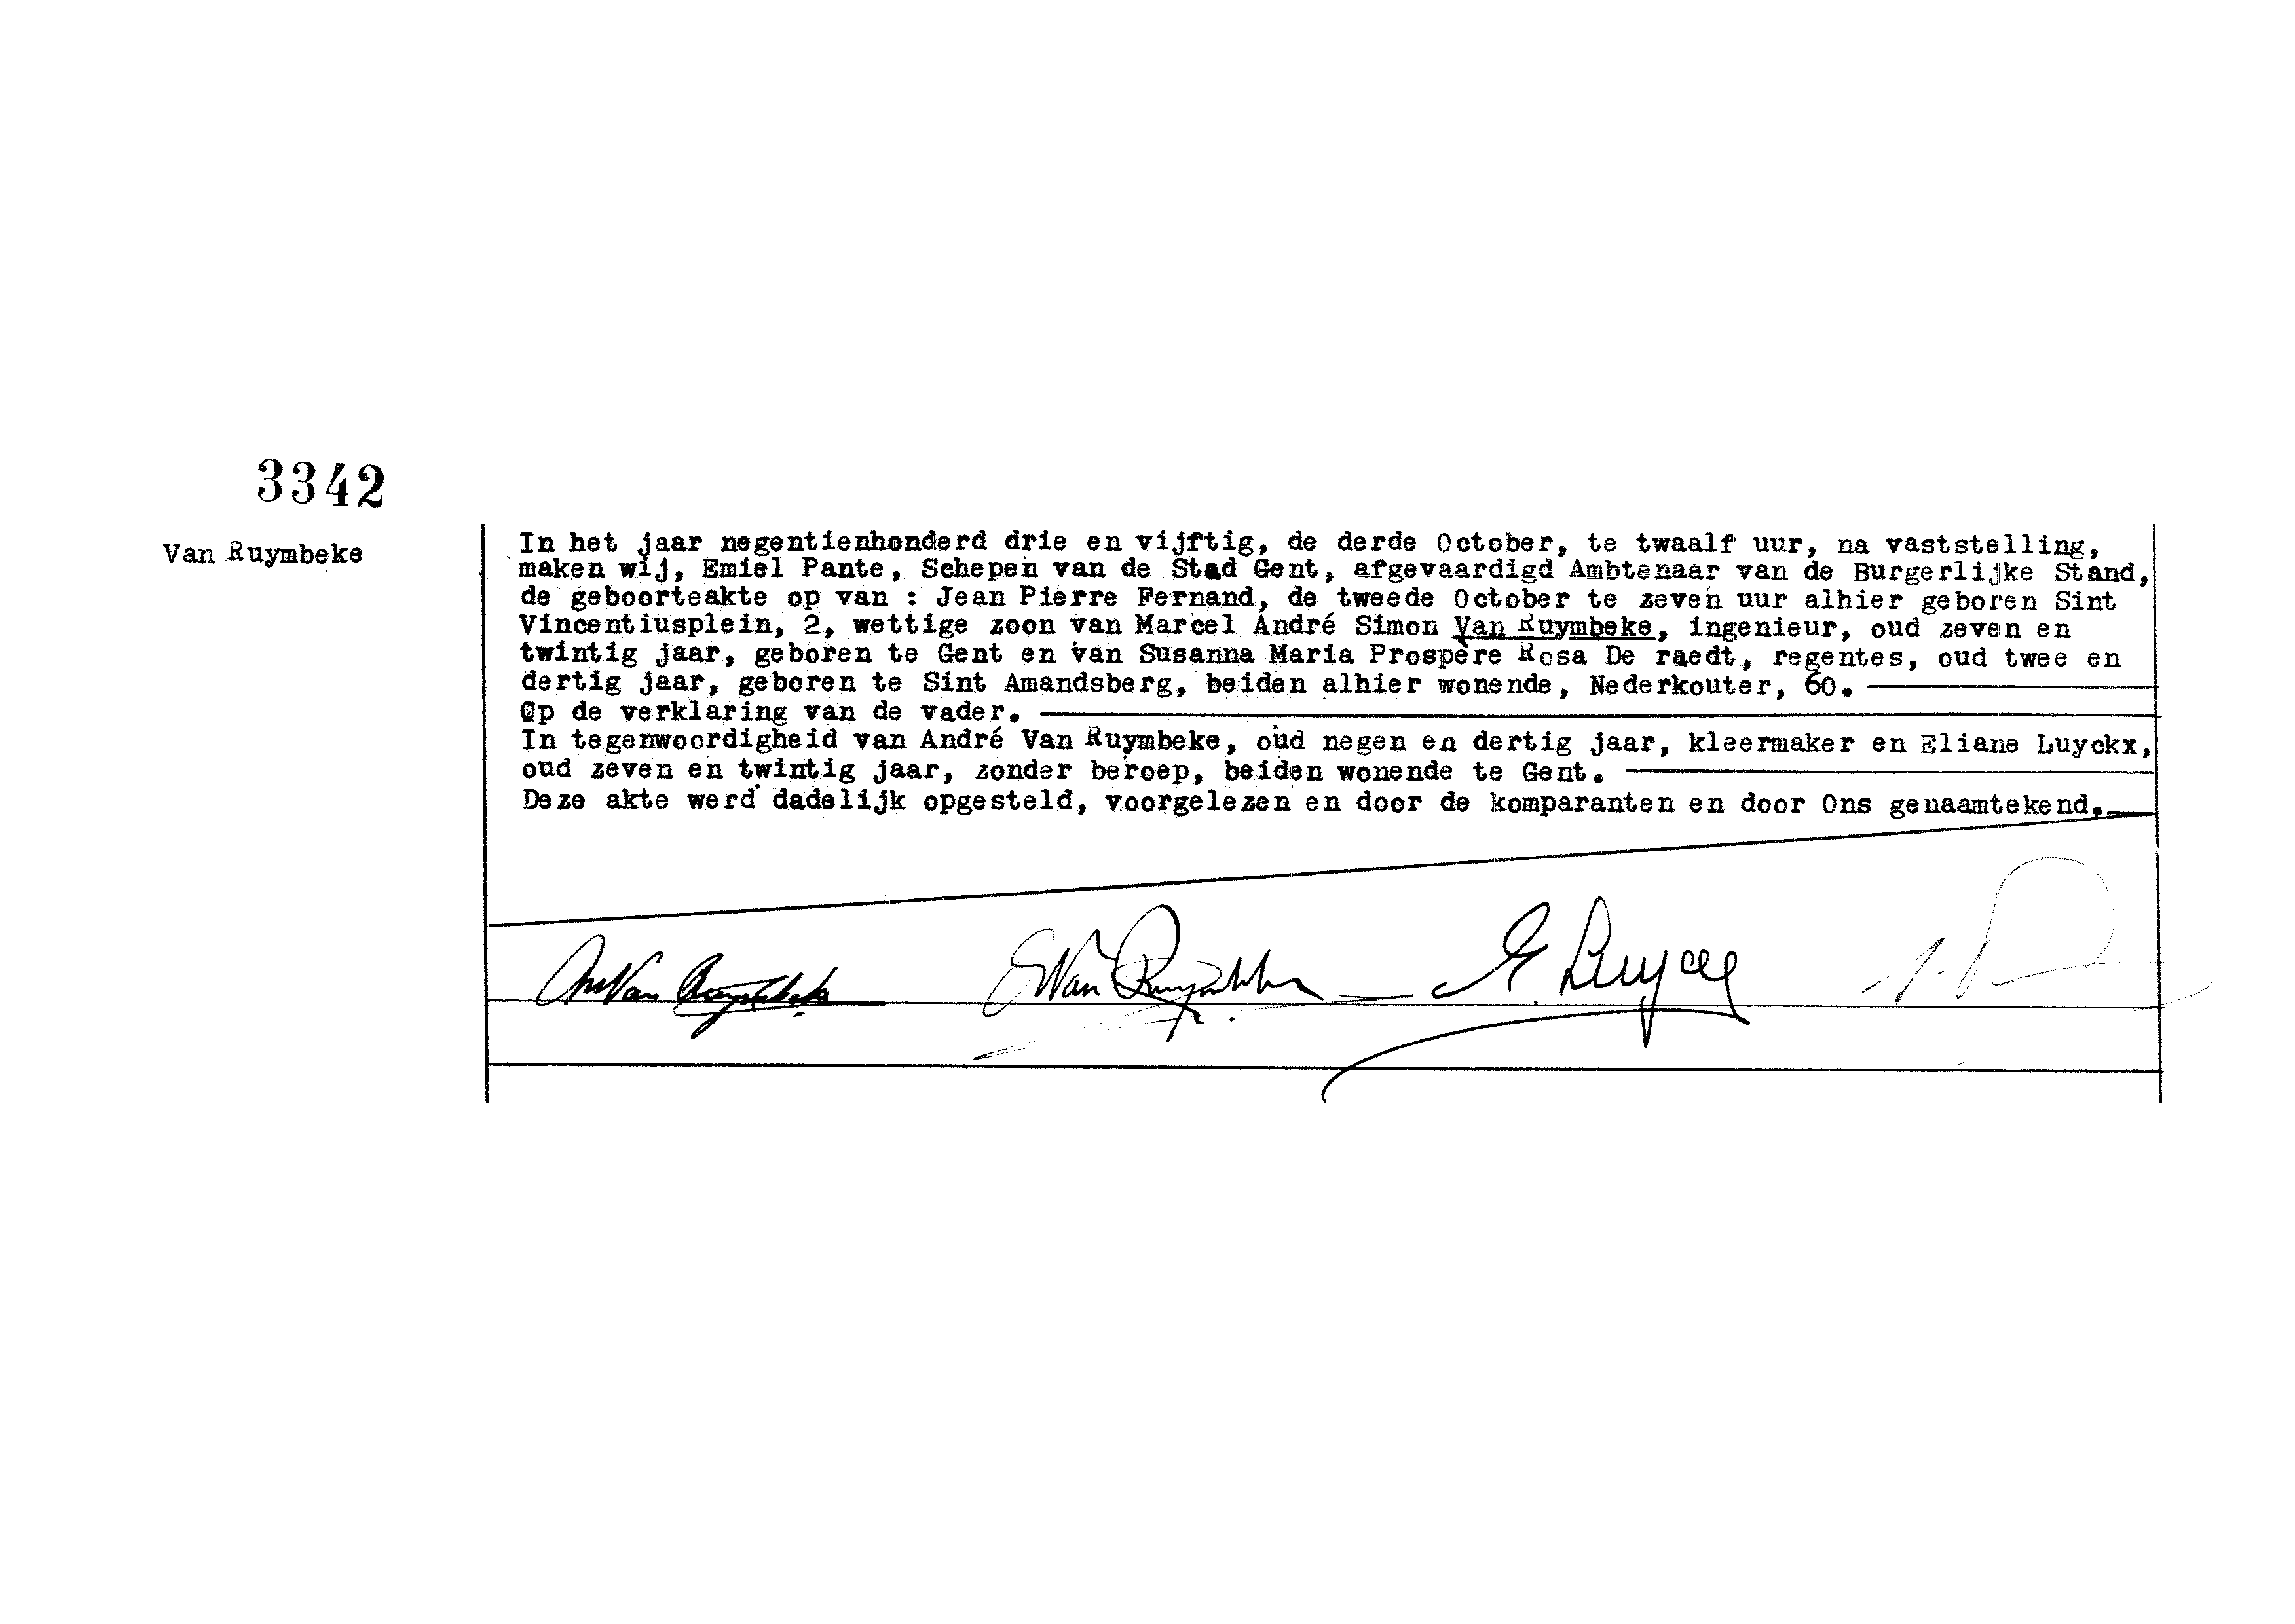 3342
Van Ruymbeke
In het jaar negentienhonderd drie en vijftig, de derde October, te twaalf uur, na vaststelling,
maken wij, Emiel Pante, Schepen van de Stad Gent, afgevaardigd Ambtenaar van de Burgerlijke Stand,
de geboorteakte op van : Jean Pierre Fernand, de tweede October te zeven uur alhier geboren Sint
Vincentiusplein, 2, wettige zoon van Marcel André Simon Van Ruymbeke, ingenieur, oud zeven en
twintig jaar, geboren te Gent en van Susanna Maria Prospère Rosa De raedt, regentes, oud twee en
dertig jaar, geboren te Sint Amandsberg, beiden alhier wonende, Nederkouter, 60.
Op de verklaring van de vader.
In tegenwoordigheid van André Van Ruymbeke, oud negen en dertig jaar, kleermaker en Eliane Luyckx,
oud zeven en twintig jaar, zonder beroep, beiden wonende te Gent.
Deze akte werd dadelijk opgesteld, voorgelezen en door de komparanten en door Ons genaamtekend.